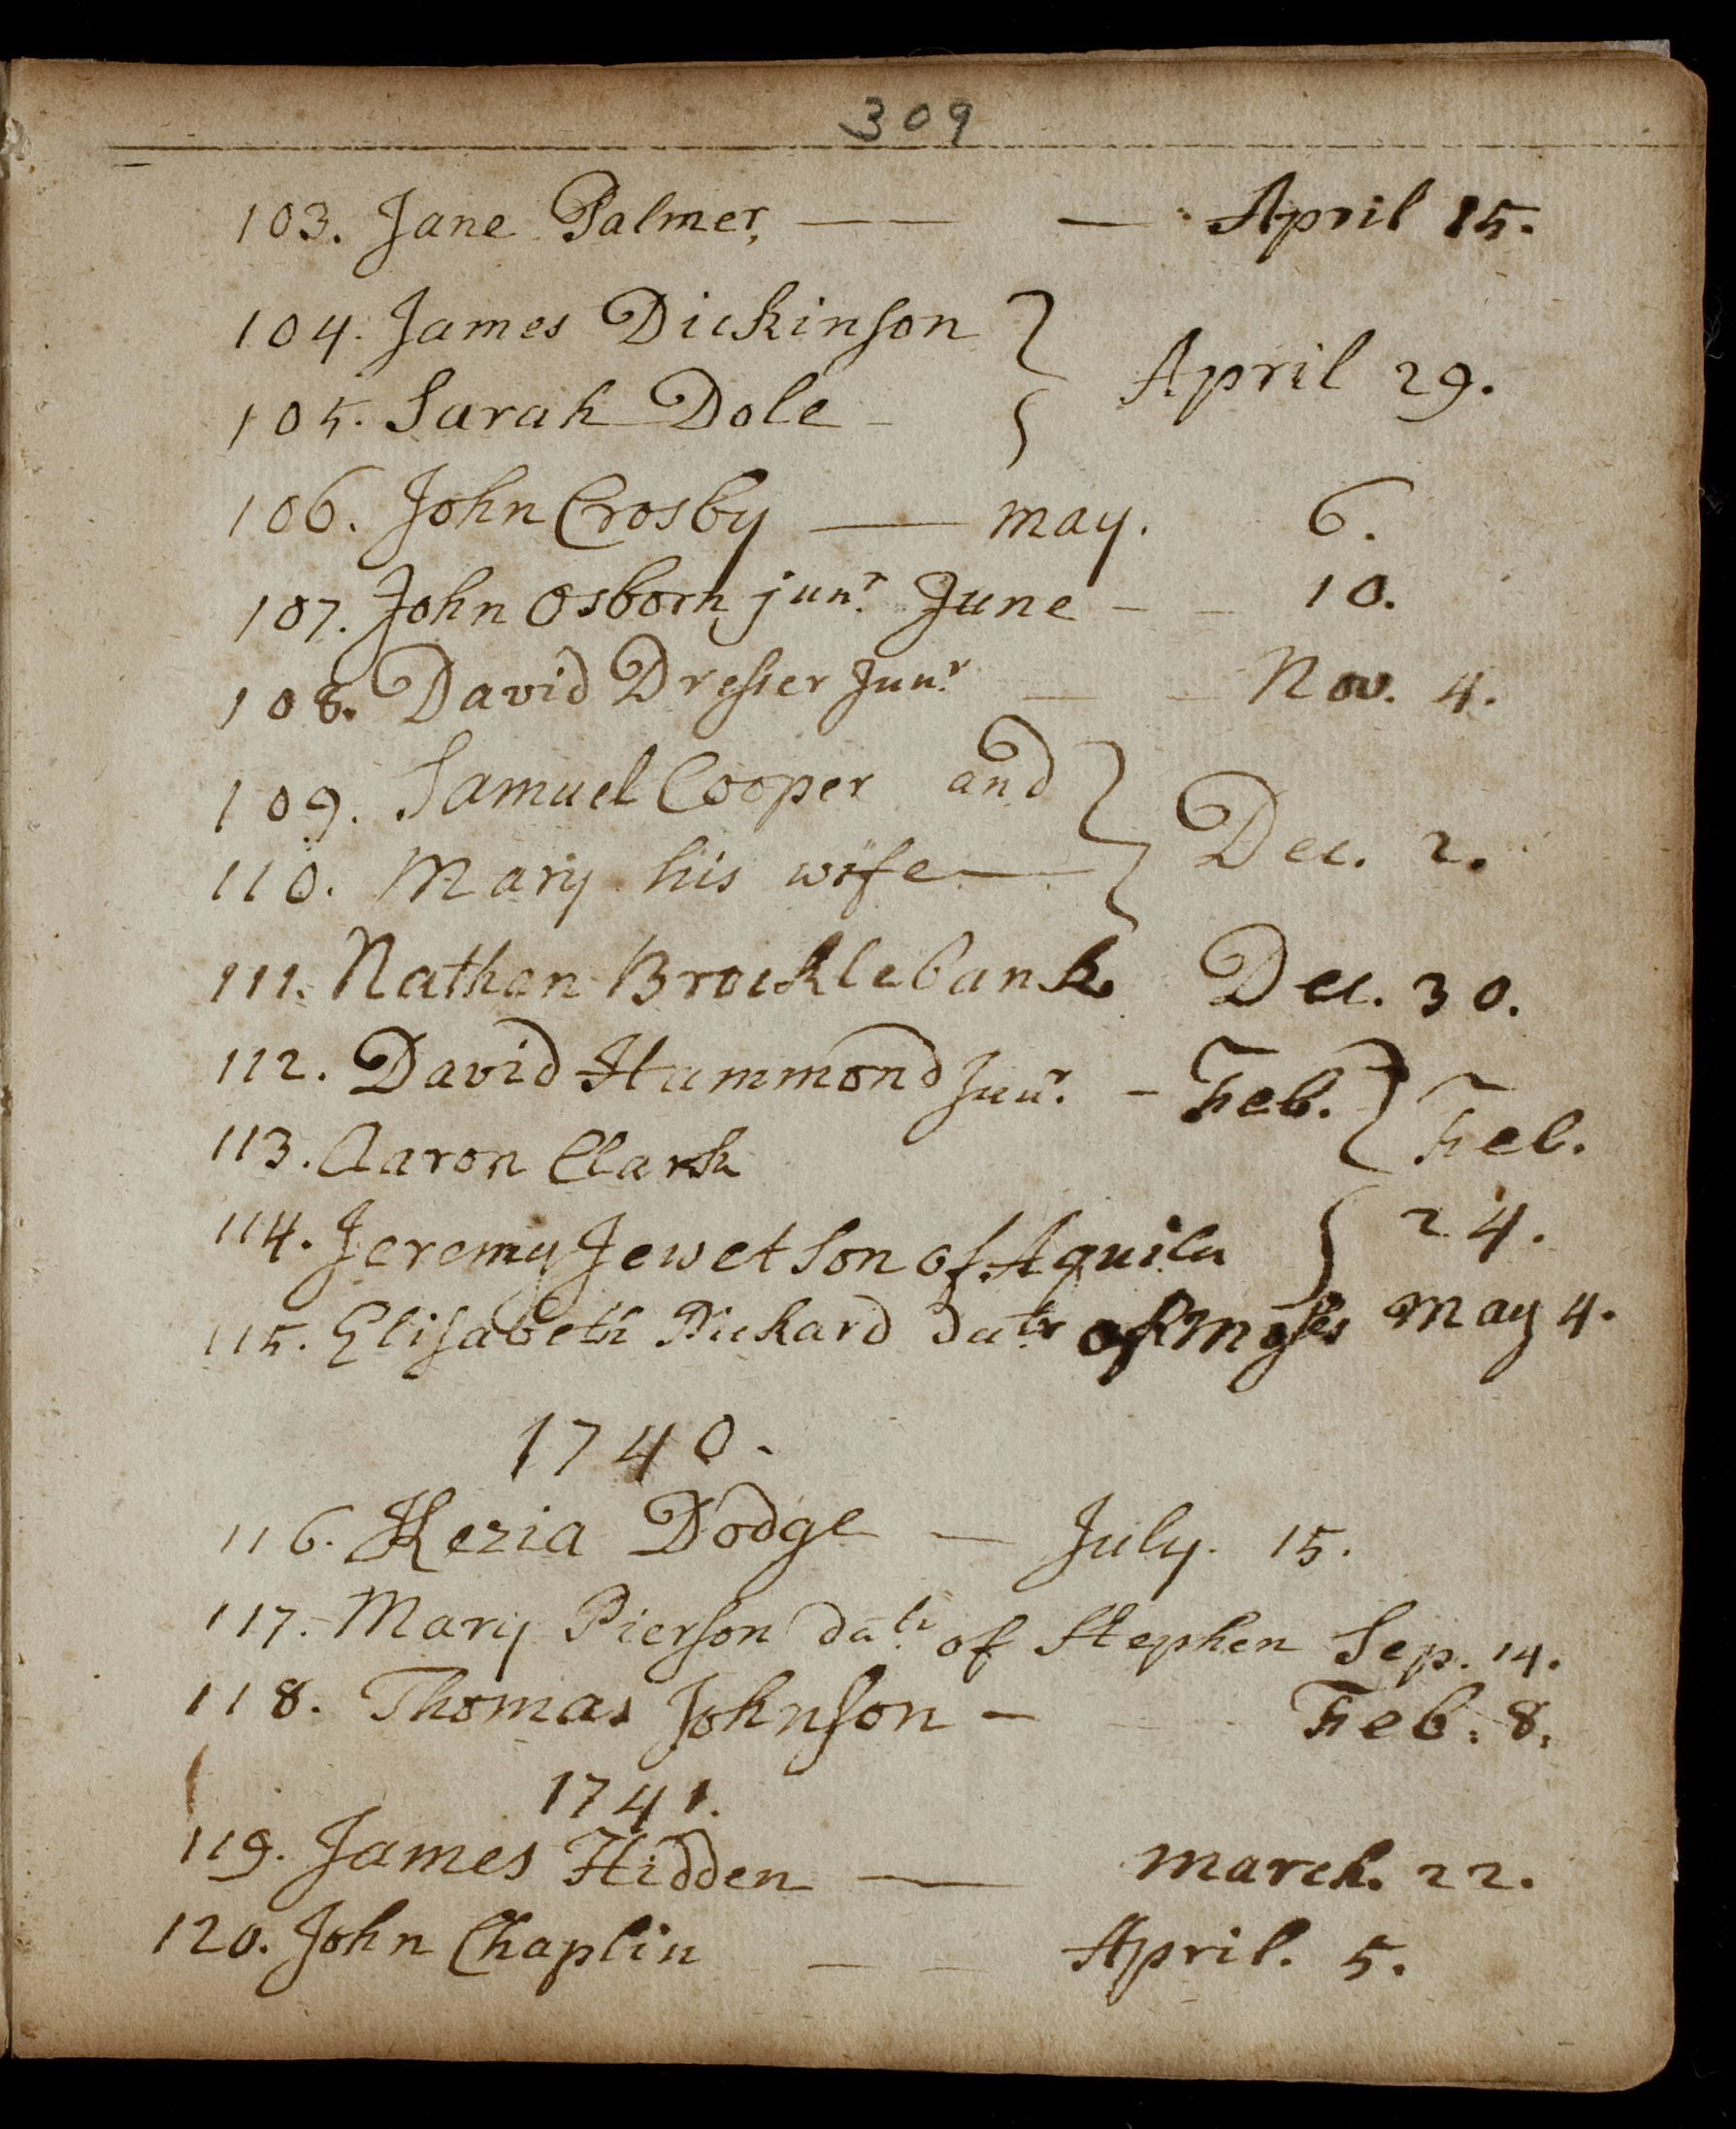 309
103. Jane Palmer, — — — April 15.
104. James Dickinson
April 29.
105. Sarah Dole -
106. John Crosby — may. 6.
107. John Osborn junr. June - - 10.
108. David Dresser Junr. — - Nov. 4.
109. Samuel Cooper and
Dec. 2.
110. Mary his wife —
111. Nathan Brocklebank Dec. 30.
112. David Hammond Junr. - Feb.
Feb.
113. Aaron Clark
24.
114. Jeremy Jewet son of Aquila
115. Elisabeth Pickard datr of Moses May 4.
1740.
116. Kezia Dodge — July. 15.
117. Mary Pierson datr. of Stephen Sep. 14.
118. Thomas Johnson - Feb. 8.
1741.
119. James Hidden — march. 22.
120. John Chaplin — — April. 5.